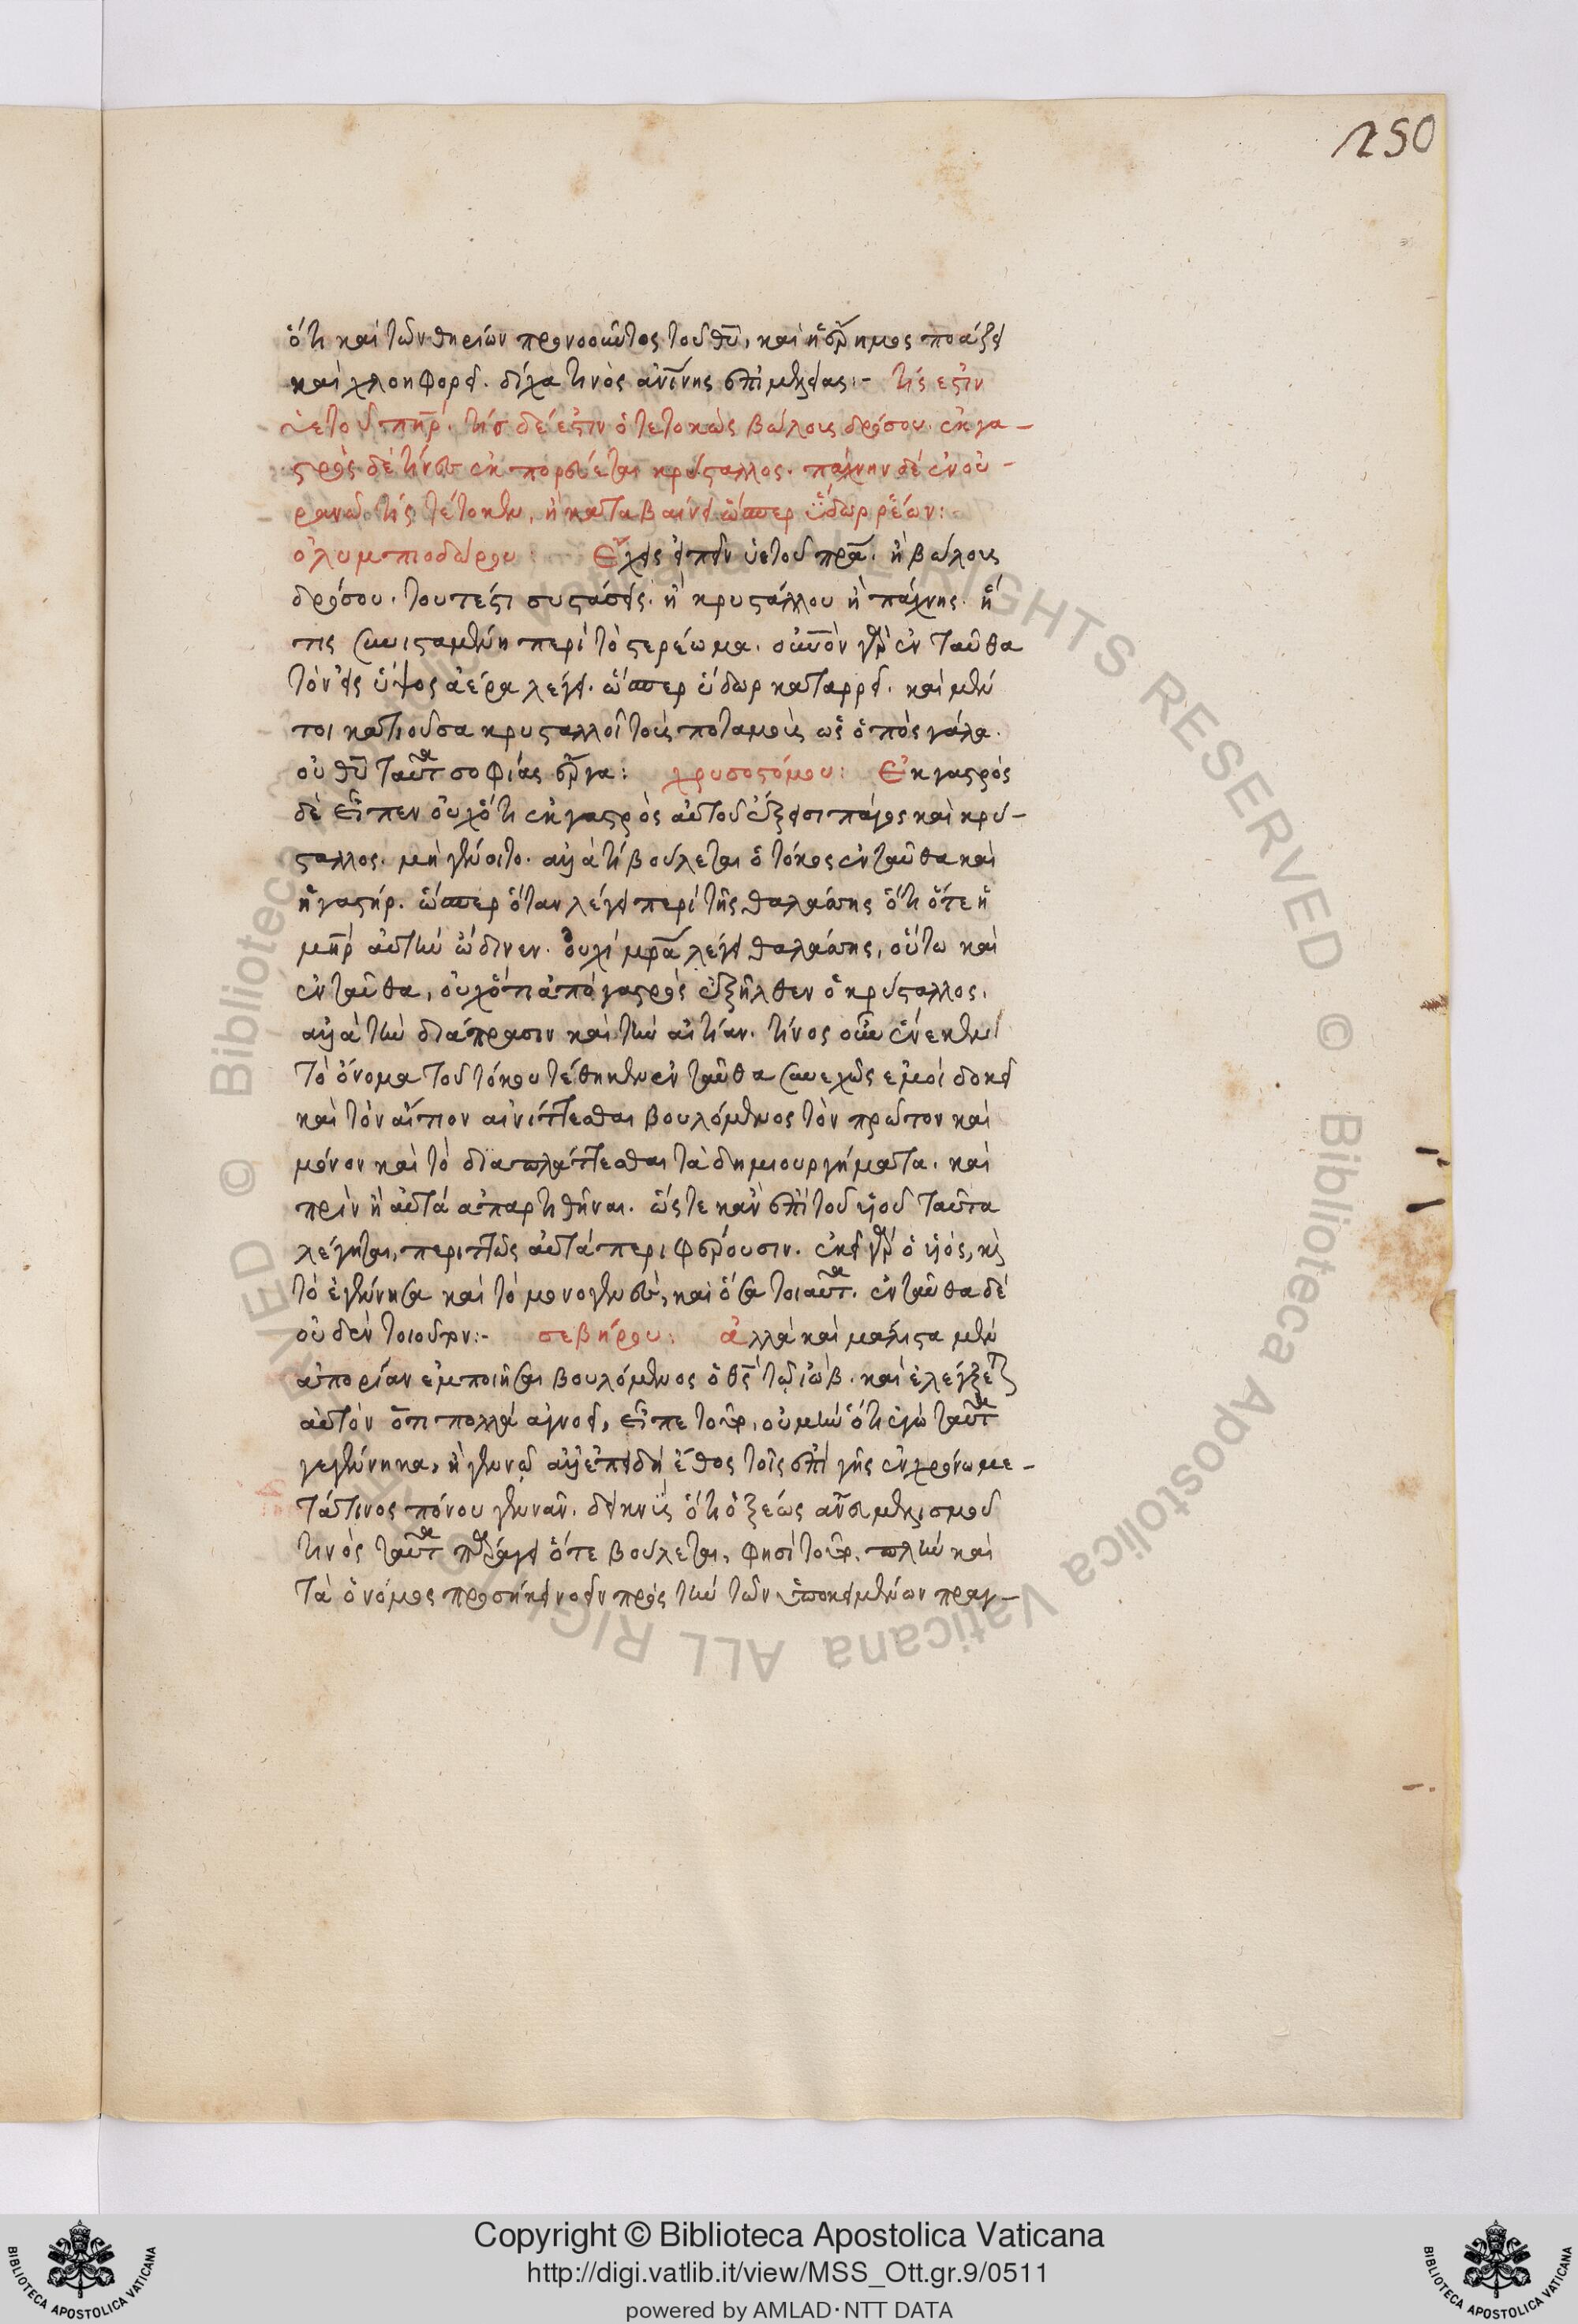 250
ὅτι καὶ τῶν θηρίων προνοοῦντος τοῦ θῡ, καὶ ἡ ἔρημος ποάζει
καὶ χλοηφορεῖ. δίχα τινὸς ἀνίνης ἐπιμελείας:- τίς ἐστιν
ὑετοῦ πηρ. τίς δέ ἐστιν ὁ τετοκὼς βώλους δρόσου. ἐκ γα-
στρὸς δὲ τίνος ἐκπορεύεται κρύσταλλος. πάχνην δὲ ἐν οὐ-
ρανῶ τίς τέτοκεν, ἢ καταβαίνει ὥσπερ ὕδωρ ῥέον:
ὀλυμπιοδώρου: εἰπεῖν ὑετοῦ πρα. ἢ βώλους
δρόσου. τουτέστι συστάσεις. ἢ κρυστάλλου ἢ πάχνης. ἥ
τις συνισταμένη περὶ τὸ στερέωμα. οὐνὸν γὰρ ἐνταῦθα
τὸν εἰς ὕψος ἀέρα λέγει. ὥσπερ ὕδωρ καταρρεῖ. καὶ μέν
τοι κατιοῦσα κρυσταλλοῖ τοὺς ποταμοὺς ὡς ὀπὸς γάλα.
οὐ θῡ ταῦτα σοφίας ἔργα: χρυσοστόμου: Ἐκ γαστρὸς
δὲ εἶπεν οὐχ ὅτι ἐκ γαστρὸς αὐτοῦ ἔξεισι πάγος καὶ κρύ-
σταλλος. μὴ γένοιτο. ἀλλὰ τί βούλεται ὁ τόκος ἐνταῦθα καὶ
ἡ γαστήρ. ὥσπερ ὅταν λέγει περὶ τῆς θαλάσσης ὅτι ὅτε ἡ
μηρ αὐτὴν ὤδινεν. οὐχὶ μρα λέγει θαλάσσης, οὕτω καὶ
ἐνταῦθα, οὐχ ὅτι ἀπὸ γαστρὸς ἐξῆλθεν ὁ κρύσταλλος,
ἀλλὰ τὴν διάπρασιν καὶ τὴν αἰτίαν. τίνος οὖν ἕνεκεν
τὸ ὄνομα τοῦ τόκου τέθηκεν ἐνταῦθα συνεχῶς ἐμοὶ δοκεῖ
καὶ τὸν αἴτιον αἰνίττεσθαι βουλόμενος τὸν πρῶτον καὶ
μόνον καὶ τὸ διαπλάττεσθαι τὰ δημιουργήματα. καὶ
πρὶν ἢ αὐτὰ ἀπαρτιθῆναι. ὥστε κἂν ἐπὶ τοῦ υἱοῦ ταῦτα
λέγηται, περιττῶς αὐτὰ περιφέρουσιν. ἐκεῖ γὰρ ὁ υἱός, κὶ
τὸ ἐγέννησα καὶ τὸ μονογενὴς, καὶ ὅσα τοιαῦτα. ἐνταῦθα δὲ
οὐδὲν τοιοῦτον:- σεβήρου: ἀλλὰ καὶ μάλιστα μὲν
ἀπορίαν ἐμποιῆσαι βουλόμενος ὁ θς τῶ ἰώβ. καὶ ἐλέγξαι
αὐτὸν ὅτι πολλὰ ἀγνοεῖ, εἶπε τοῦτο, οὐ μὴν ὅτι ἐγὼ ταῦτα
γεγέννηκα, ἢ γεννῶ ἀλλ' ἐπειδὴ ἔθος τοῖς ἐπὶ γῆς ἐν χρόνω με-
τά τινος πόνου γεννᾶν. δεικνὺς ὅτι ὀξέως ἄνευ μελισμοῦ
τινὸς ταῦτα παράγει ὅτε βούλεται, φησὶ τοῦτο. πλὴν καὶ
τὰ ὀνόματα προσῆκε νοεῖν πρὸς τὴν τῶν ὑποκειμένων πραγ-
Copyright © Biblioteca Apostolica Vaticana
http://digi.vatlib.it/view/MSS_Ott.gr.9/0511
powered by AMLAD·NTT DATA